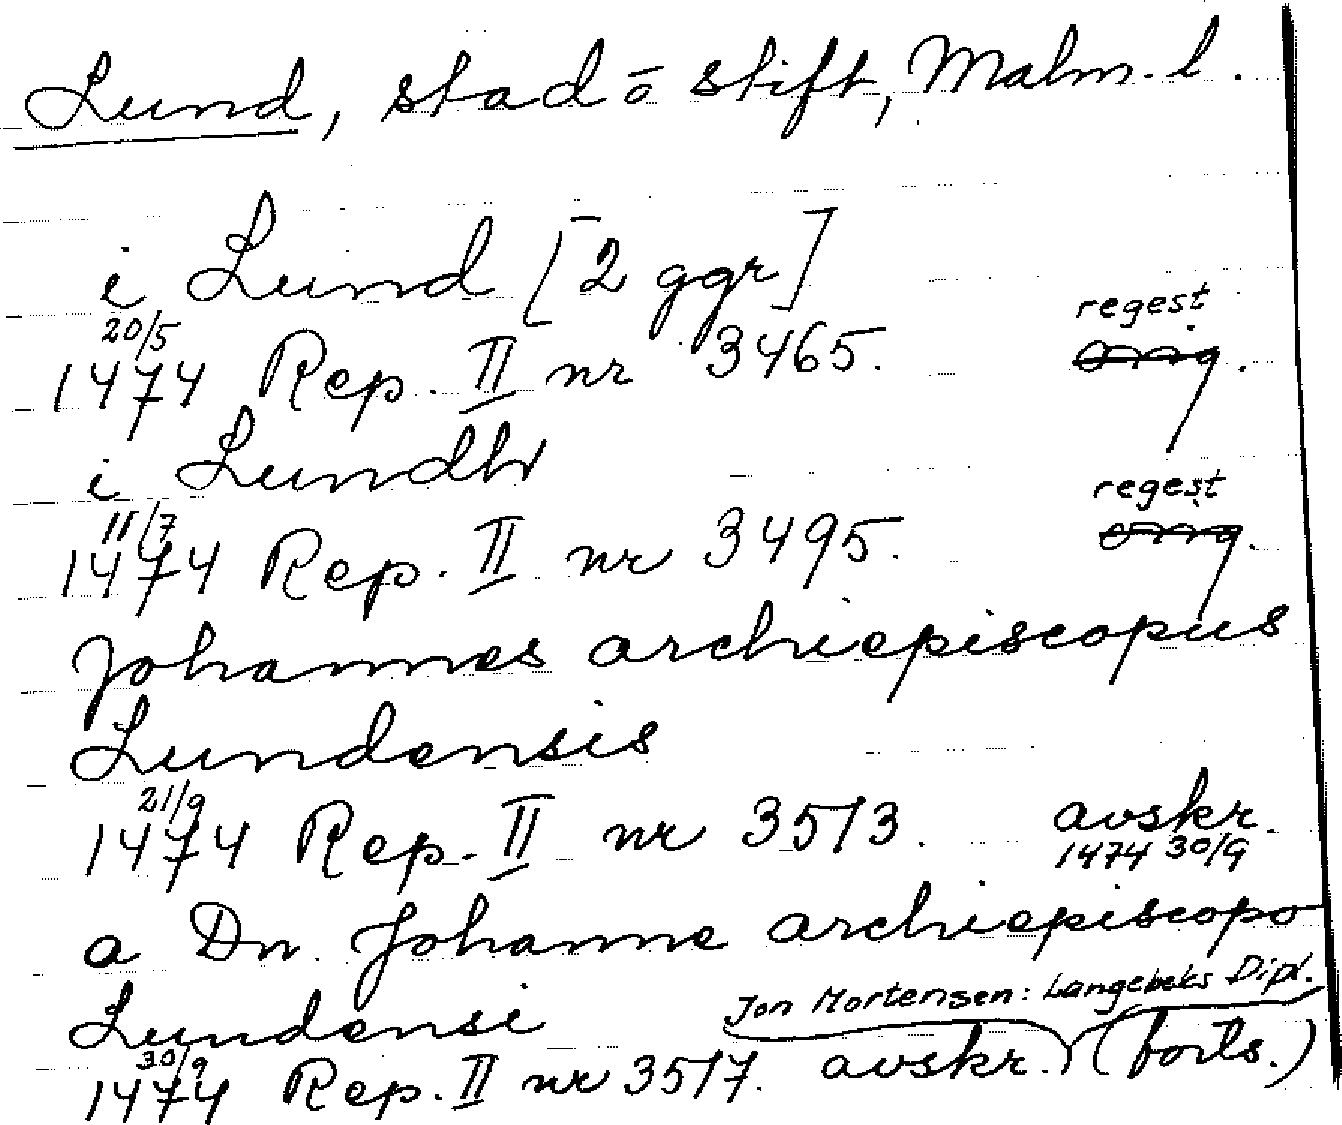 Lund, stad o stift, Malm. l.
i Lund [2 ggr]
20/5 regest
1474 Rep. II nr 3465. orig.
i Lundh
11/7 regest
1474 Rep. II nr 3495. orig.
Johannes archiepiscopus
Lundensis
21/9
1474 Rep. II nr 3513. avskr.
1474 30/9
a Dn. Johanne archiepiscopo
Lundensi Jon Mortensen: Langebeks Dipl.
30/9
1474 Rep. II nr 3517. avskr. (forts.)